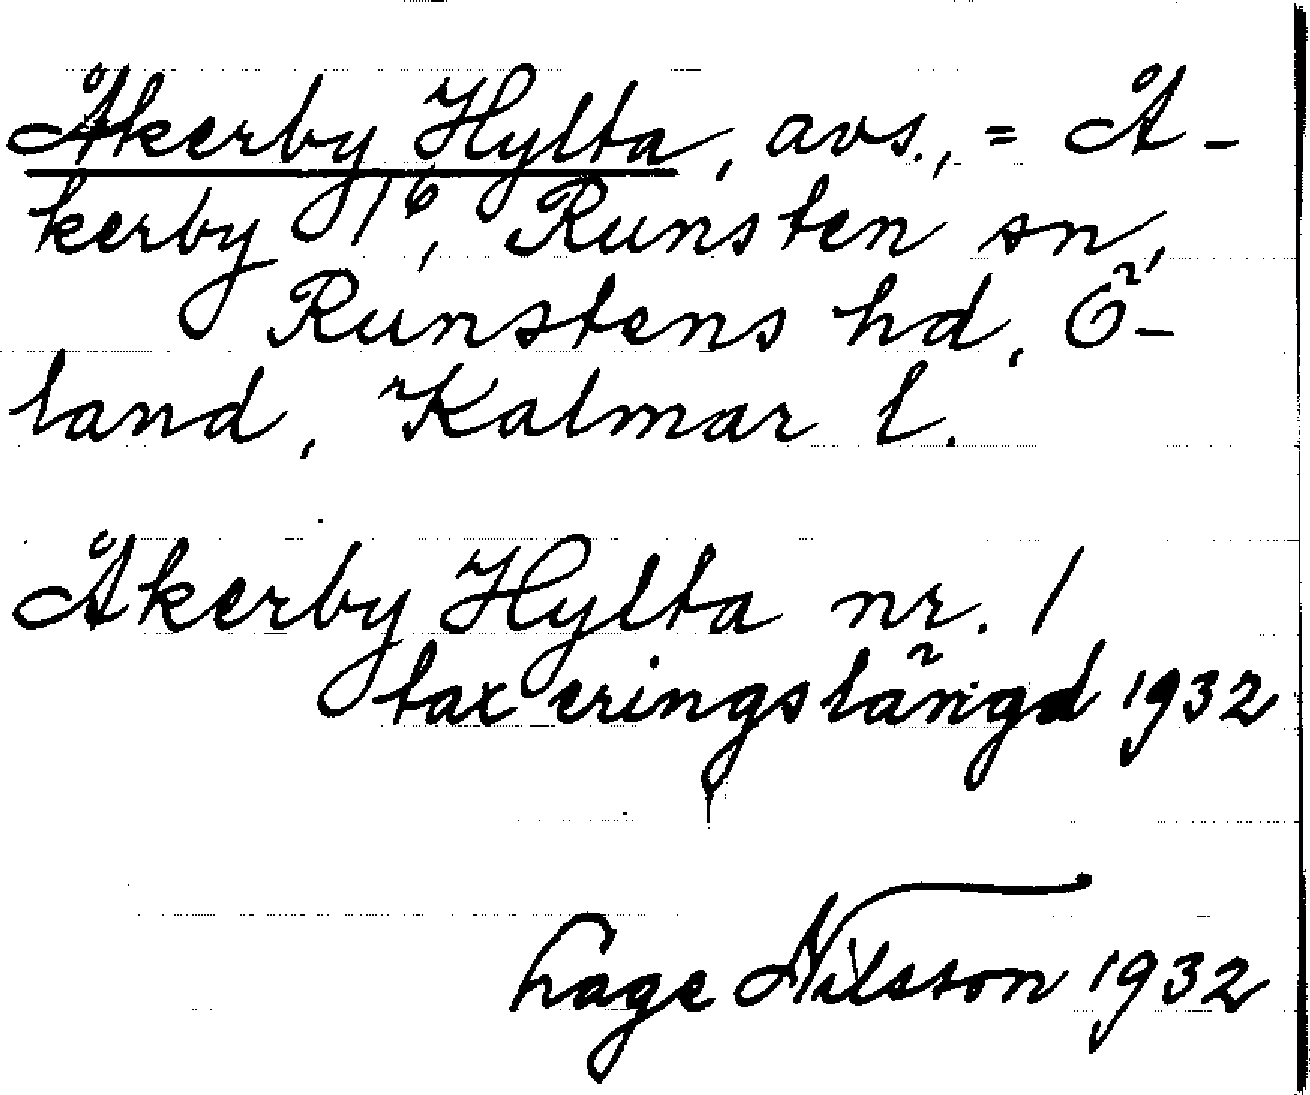 Åkerby Hylta, avs., = Å-
kerby 1⁶, Runsten sn,
Runstens hd, Ö-
land, Kalmar l.
Åkerby Hylta nr. 1
taxeringslängd 1932
Lage Nilsson 1932